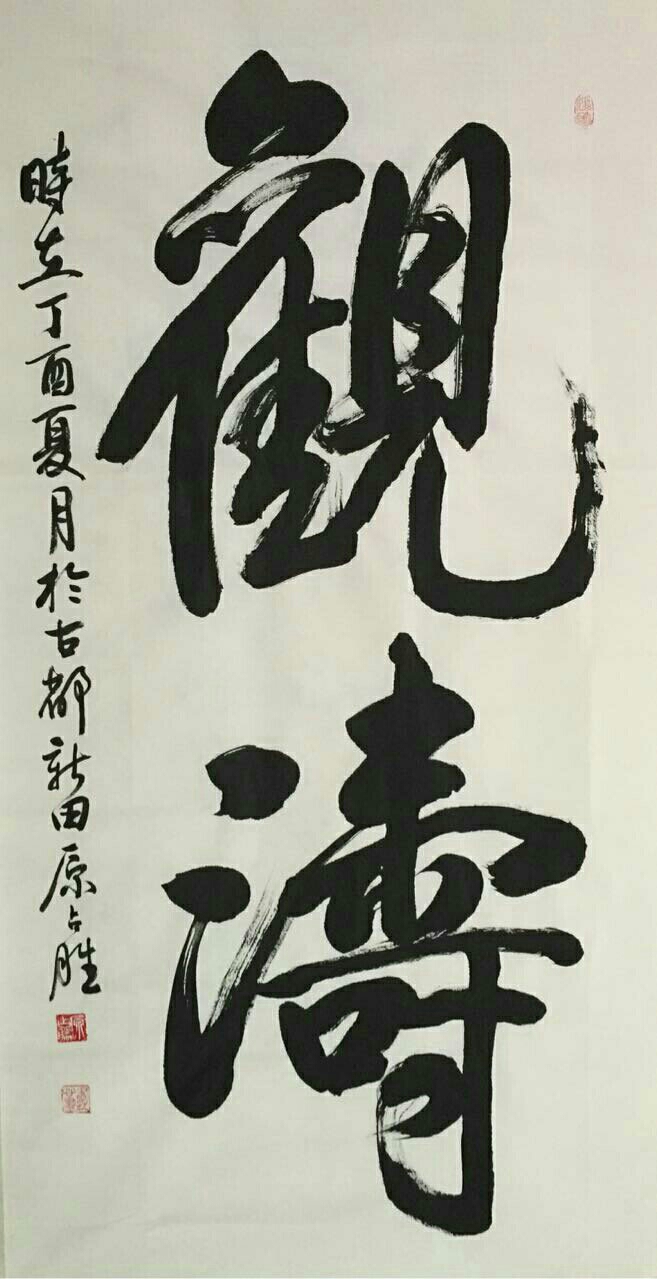 觀濤
時在丁酉夏月於古都新田原占胜